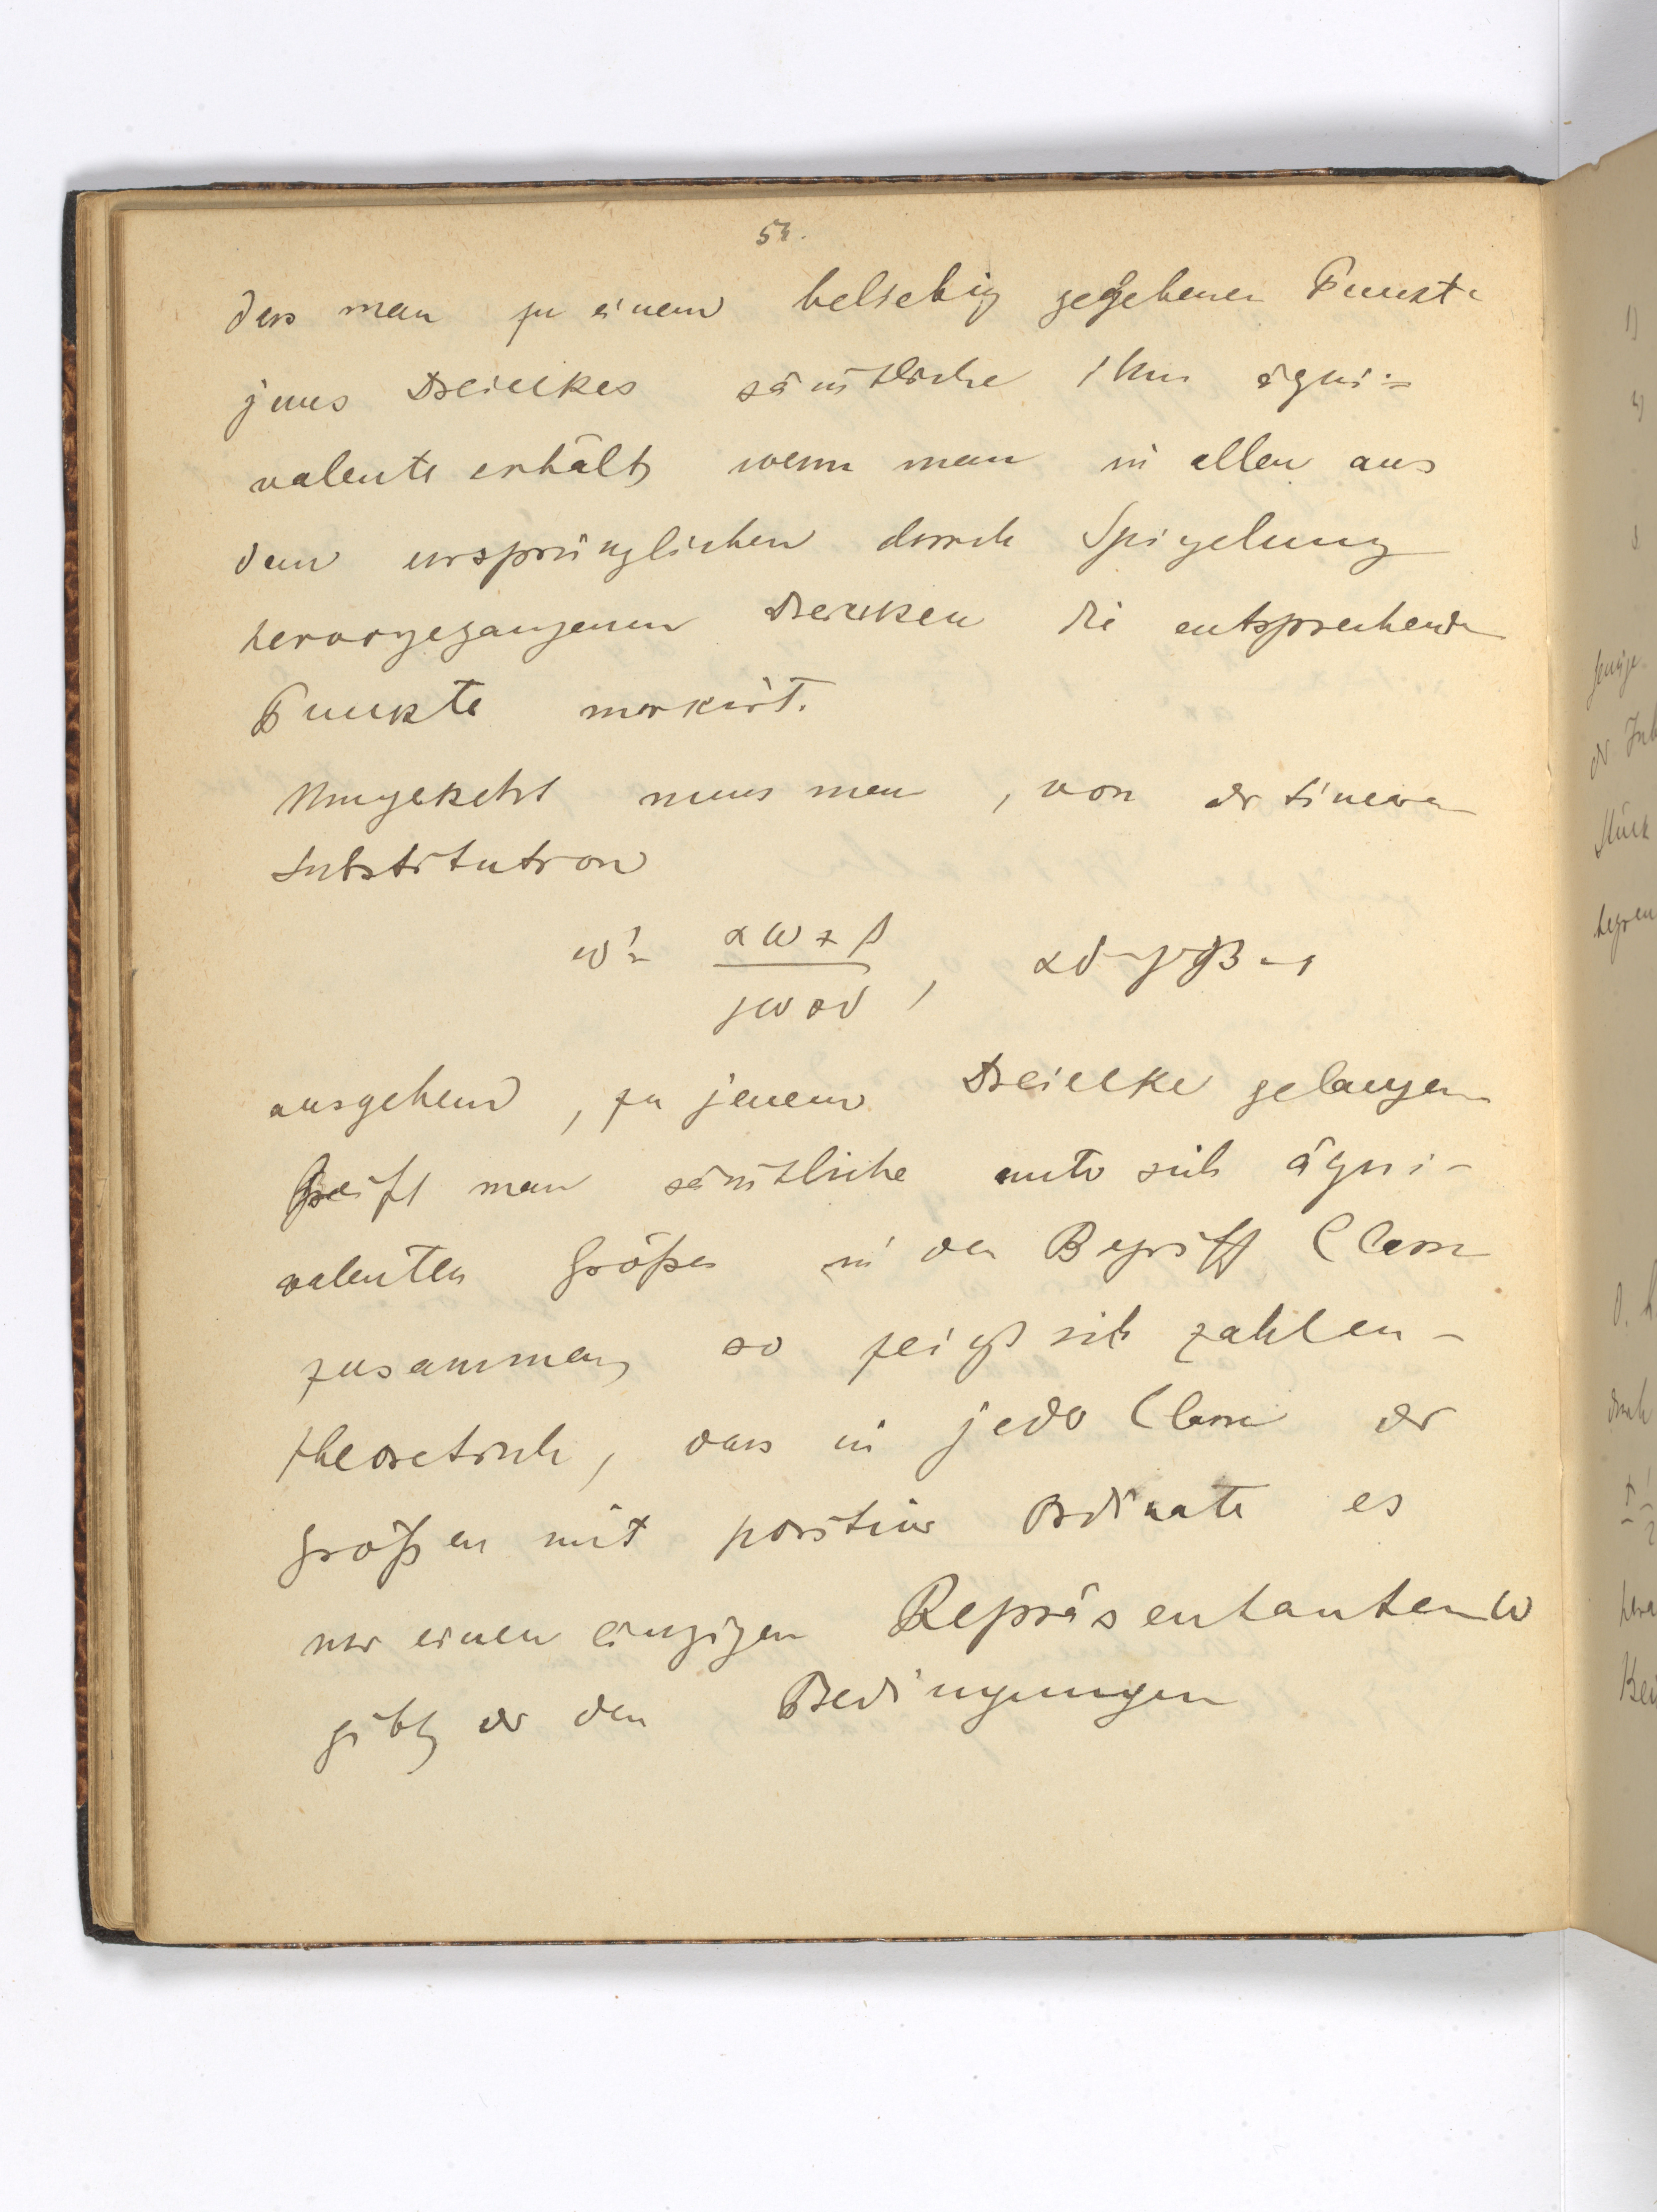 54.
dass man zu einem beliebig gegebenen Punkte
jenes Dreieckes sämtliche ihm äqui=
valente erhält, wenn man in allen aus
dem ursprünglichen durch Spiegelung
hervorgegangenen Dreiecken die entsprechenden
Punkte markirt.
Umgekehrt muss man, von der linearen
Substitution
ω' = (αω + β)/(γω + δ), αδ - γβ = 1
ausgehend, zu jenem Dreiecke gelangen
Greift man sämtliche unter sich äqui-
valenten Größen in den Begriff Classe
zusammen, so zeigt sich zahlen-
theoretisch, dass in jeder Classe der
Größen mit positiver Ordinate es
nur einen einzigen Repräsentanten ω
gibt, der den Bedingungen